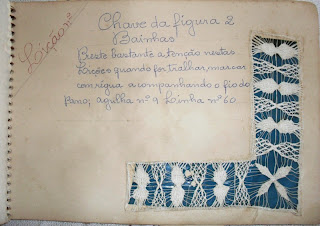 Lição nº
Chave da figura 2
Bainhas
Preste bastante atenção nestas
Lições quando for tralhar, marcar
com régua acompanhando o fio do
pano, agulha nº 9 Linha nº 60